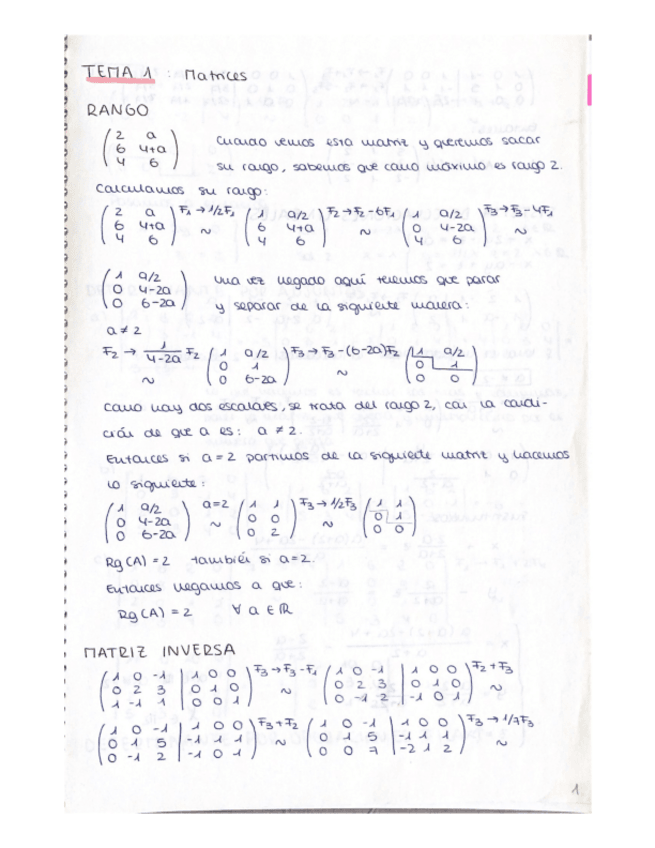 TEMA 1 : Matrices
RANGO
( 2 a ; 6 4+a ; 4 6 ) Cuando vemos esta matriz y queremos sacar
su rango, sabemos que como máximo es rango 2.
Calculamos su rango:
( 2 a ; 6 4+a ; 4 6 ) F₁ → 1/2F₁ ~ ( 1 a/2 ; 6 4+a ; 4 6 ) F₂ → F₂-6F₁ ~ ( 1 a/2 ; 0 4-2a ; 4 6 ) F₃ → F₃-4F₁ ~
( 1 a/2 ; 0 4-2a ; 0 6-2a ) una vez llegado aquí tenemos que parar
y separar de la siguiente manera:
a ≠ 2
F₂ → 1/(4-2a) F₂ ~ ( 1 a/2 ; 0 1 ; 0 6-2a ) F₃ → F₃-(6-2a)F₂ ~ ( 1 a/2 ; 0 1 ; 0 0 )
Como hay dos escalones, se trata del rango 2, con la condi-
ción de que a es: a ≠ 2.
Entonces si a = 2 partimos de la siguiente matriz y hacemos
lo siguiente:
( 1 a/2 ; 0 4-2a ; 0 6-2a ) a=2 ~ ( 1 1 ; 0 0 ; 0 2 ) F₃ → 1/2F₃ ~ ( 1 1 ; 0 1 ; 0 0 )
Rg(A) = 2 también si a=2.
Entonces llegamos a que:
Rg(A) = 2 ∀ a ∈ ℝ
MATRIZ INVERSA
( 1 0 -1 | 1 0 0 ; 0 2 3 | 0 1 0 ; 1 -1 1 | 0 0 1 ) F₃ → F₃-F₁ ~ ( 1 0 -1 | 1 0 0 ; 0 2 3 | 0 1 0 ; 0 -1 2 | -1 0 1 ) F₂+F₃ ~
( 1 0 -1 | 1 0 0 ; 0 1 5 | -1 1 1 ; 0 -1 2 | -1 0 1 ) F₃+F₂ ~ ( 1 0 -1 | 1 0 0 ; 0 1 5 | -1 1 1 ; 0 0 7 | -2 1 2 ) F₃ → 1/7F₃ ~
1